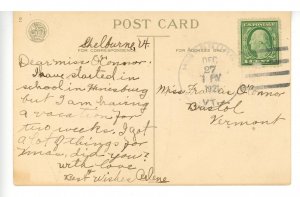 POST CARD
FOR CORRESPONDENCE
FOR ADDRESS ONLY
Shelburne, Vt
Dear miss O'Connor.
I have started in
school in Hinesburg
but I am having
a vacation for
two weeks. I got
a lot of things for
Xmas, did you?
with love
Best Wishes Arlene
DEC
27
1 PM
VT.
Miss Frances O'Connor
Bristol
Vermont